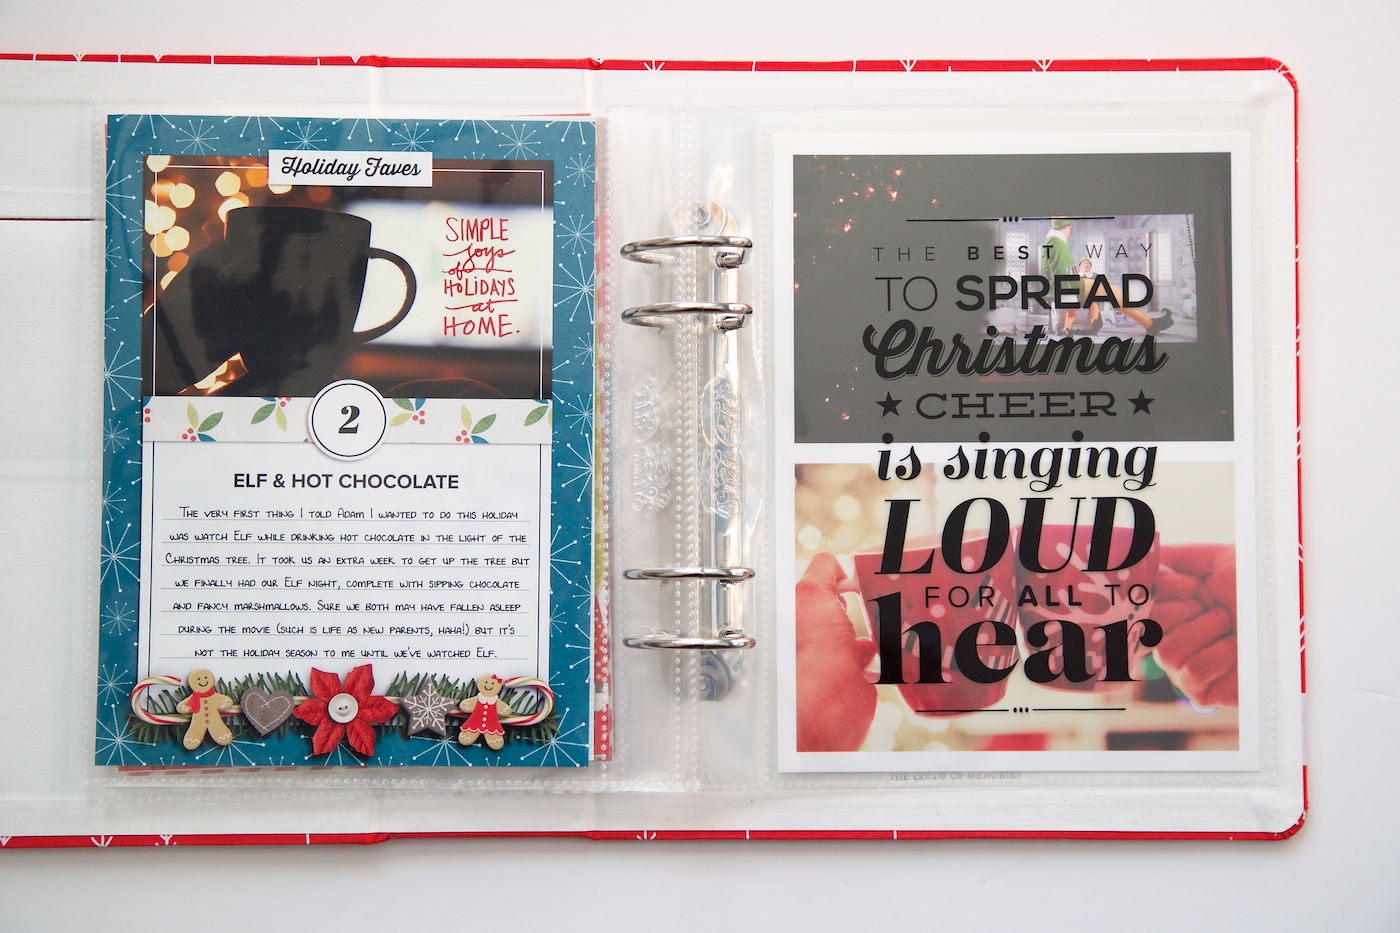 Holiday Faves
SIMPLE
joys
of
HOLIDAYS
at
HOME.
2
ELF & HOT CHOCOLATE
THE VERY FIRST THING I TOLD ADAM I WANTED TO DO THIS HOLIDAY
WAS WATCH ELF WHILE DRINKING HOT CHOCOLATE IN THE LIGHT OF THE
CHRISTMAS TREE. IT TOOK US AN EXTRA WEEK TO GET UP THE TREE BUT
WE FINALLY HAD OUR ELF NIGHT, COMPLETE WITH SIPPING CHOCOLATE
AND FANCY MARSHMALLOWS. SURE WE BOTH MAY HAVE FALLEN ASLEEP
DURING THE MOVIE (SUCH IS LIFE AS NEW PARENTS, HAHA!) BUT IT'S
NOT THE HOLIDAY SEASON TO ME UNTIL WE'VE WATCHED ELF.
THE BEST WAY
TO SPREAD
Christmas
CHEER
is singing
LOUD
FOR ALL TO
hear
THE COLOR OF MEMORIES